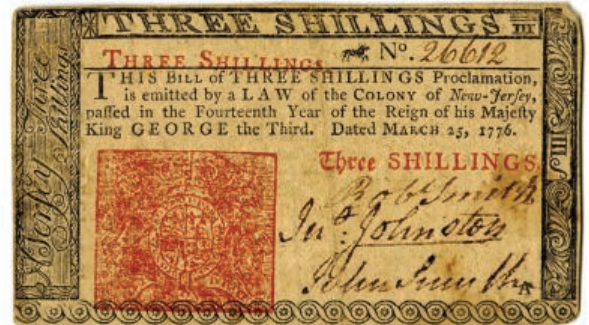 THREE SHILLINGS III
THREE SHILLINGS No. 26612
THIS BILL of THREE SHILLINGS Proclamation,
is emitted by a LAW of the COLONY of New-Jersey,
paſſed in the Fourteenth Year of the Reign of his Majeſty
King GEORGE the Third. Dated MARCH 25, 1776.
Three SHILLINGS
Robt Smith
Jno. Johnston
John Smyth
A
N Jerſey Three Shillings
III